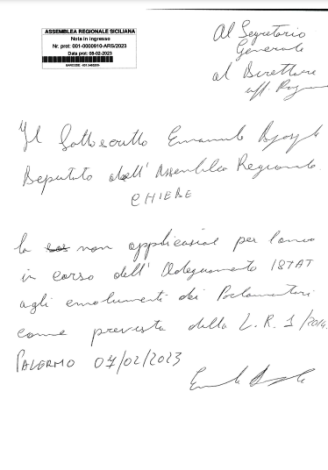 ASSEMBLEA REGIONALE SICILIANA
Nota in ingresso
Nr. prot: 001-0000910-ARS/2023
Data prot: 08-02-2023
Al Segretario
Generale
al Direttore
uff.
Il Sottoscritto Emanuele
Deputato dell'Assemblea Regionale
CHIERE
la non applicazione per l'anno
in corso dell'Adeguamento ISTAT
agli emolumenti dei Parlamentari
come prevista della L.R. 1/2014
PALERMO 07/02/2023